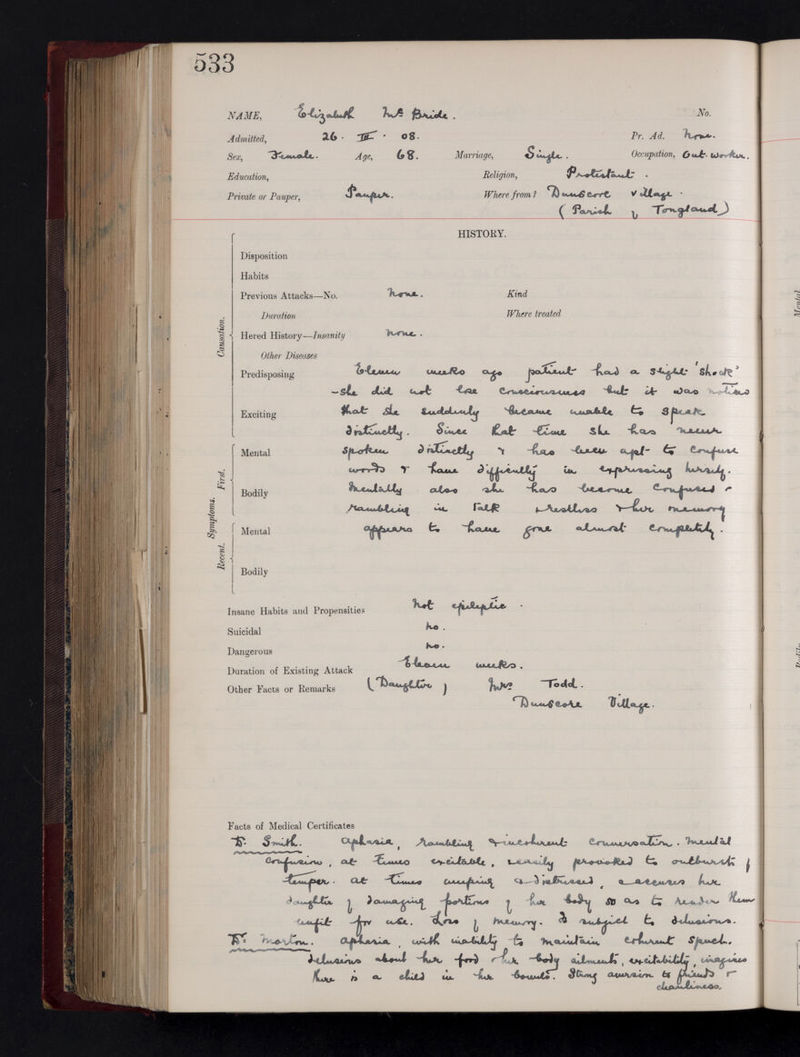 533
NAME, Elizabeth McBride. No.
Admitted, 26 · III · 08. Pr. Ad. None.
Sex, Female. Age, 68. Marriage, Single. Occupation, Out-worker.
Education, Religion, Protestant.
Private or Pauper, Pauper. Where from? Dunscore Village.
(Parish of Tongland)
HISTORY.
Disposition
Habits
Previous Attacks—No. None. Kind
Duration Where treated
Hered History—Insanity None.
Other Diseases
Predisposing Eleven weeks ago patient had a slight 'shock'
– she did not lose consciousness but it was noticed
Exciting that she suddenly became unable to speak
distinctly. Since that time she has never
Mental spoken distinctly & has been apt to confuse
words & have difficulty in expressing herself.
Bodily Mentally also she has become confused &
rambling in talk restless & her memory
Mental appears to have gone almost completely.
Bodily
Causation.
Symptoms.
First.
Recent.
Insane Habits and Propensities Not epileptic.
Suicidal No.
Dangerous No.
Duration of Existing Attack Eleven weeks.
Other Facts or Remarks (Daughter) Mrs Todd.
Dunscore Village.
Facts of Medical Certificates
Dr Smith. Aphasia, rambling & incoherent conversation. Mental
confusion, at times excitable, & easily provoked to outbursts of
temper. At times weeping & distressed, & accuses her
daughter of damaging portions of her body so as to render them
unfit for use. Loss of memory. Is subject to delusions.
Dr Morton. Aphasia, with inability to maintain coherent speech.
Delusions about her food & her body ailments, excitability, imagines
there is a child in her bowels. Strong aversion to friends &
cleanliness.